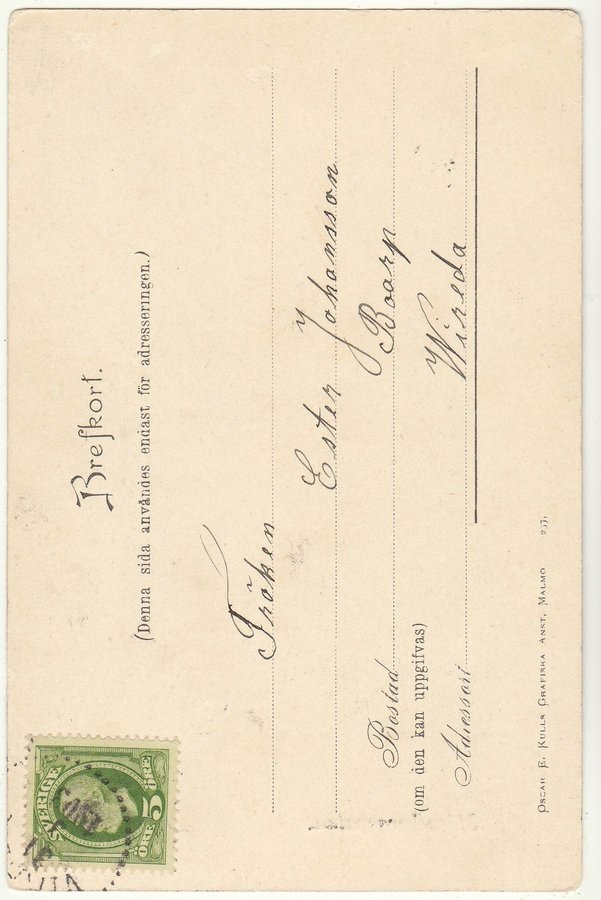 Brefkort.
(Denna sida användes endast för adresseringen.)
Fröken
Ester Johansson
Bostad Boarp
(om den kan uppgifvas)
Adressort Wireda
OSCAR E. KULLS GRAFISKA ANST, MALMÖ
SVERIGE
5
ÖRE ÖRE